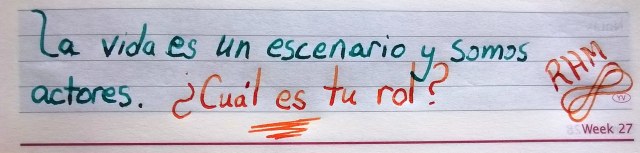 La vida es un escenario y somos
actores. ¿Cuál es tu rol?
RHM
TV
Week 27